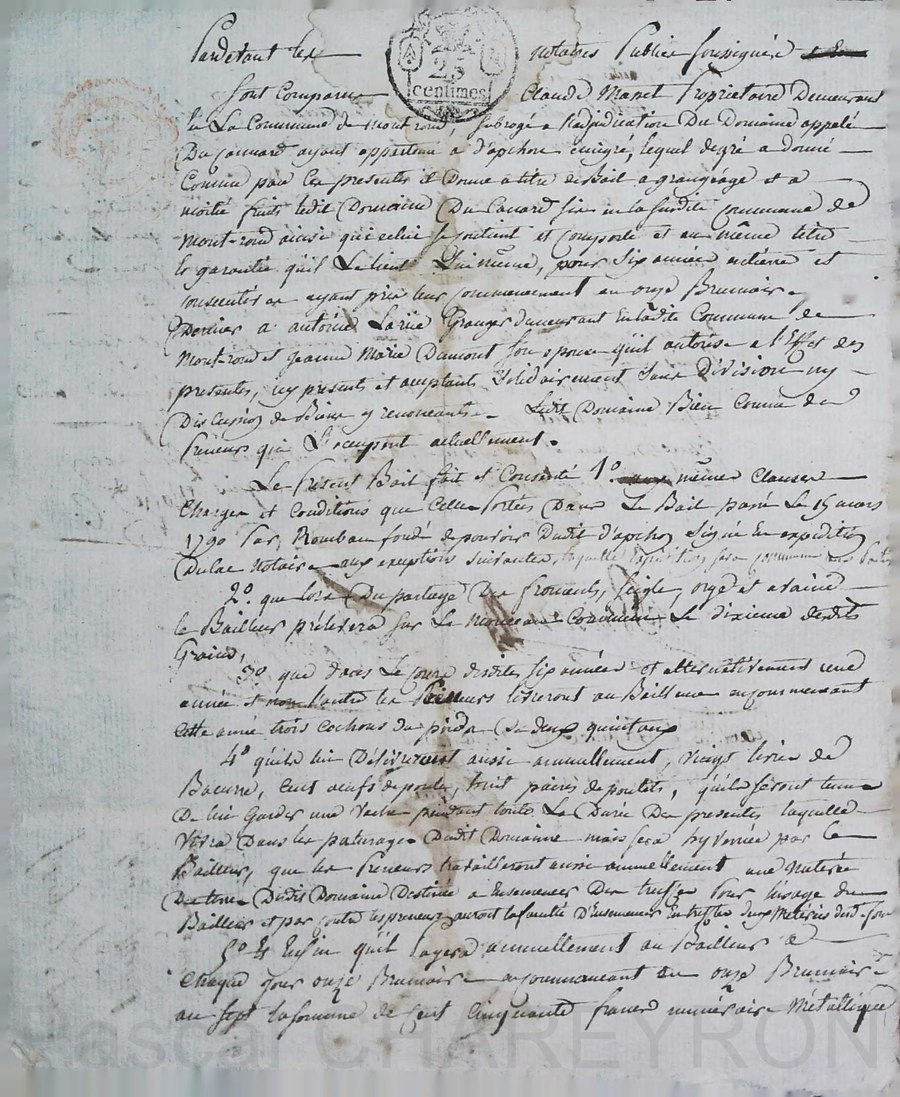 Pardevant les notaires Publics soussignés
25
centimes
Sont Comparus Claude Manet Propriétaire Demeurant
en La Commune de Montrond, subrogé a l'adjudication Du Domaine appelé
Du Canard ayant appartenu a d'apchon émigré, lequel degré a donné
Comme par Ces presentes il Donne a titre de Bail a grangeage et a
moitié fruits ledit Domaine Du Canard sis en la susdite Commune de
Montrond ainsi qu'icelui se contient et Comporte et au même titre
de garantie qu'il Le tient Lui même, pour six années entieres et
consecutives ayant pris leur commencement au onze Brumaire
Dernier a antoine Larue Granger demeurant En ladite Commune de
Montrond et jeanne Marie Dumont son epouse qu'il autorise a l'Effet des
presentes, icy presents et acceptants solidairement sans Division ny
Discussion de Biens y renonceants. Ledit Domaine Bien Connu des
Preneurs qui L'occupent actuellement.
Le Present Bail fait et Consenté 1º aux même Clauses
Charges et Conditions que Celles Portées Dans Le Bail passé Le 15 mars
1790 Par Rombau fondé de pouvoir Dudit d'apchon signé En expedition
Dulac Notaire aux exceptions suivantes, laquelle Expedition sera commune aux Parties
2º que lors Du partage Des froments, seigle, orge et avaine
le Bailleur prélevera sur Le monceau Commun Le dixieme desdits
Grains,
3º que dans Le cours desdites six années et alternativement une
année et non l'autre les Preneurs livreront au Bailleur en commencant
cette année trois cochons du poids de deux quintaux
4º qu'ils lui Délivreront aussi annuellement, vingt livres de
Beurre, Cent oeufs de poule, huit paires de poulets, qu'ils seront tenus
De lui Garder une vache pendant toute La Durée Des presentes laquelle
vivra Dans les paturages Dudit Domaine mais sera hyvernée par le
Bailleur, que les Preneurs travailleront aussi annuellement une
De terre Dudit Domaine Destinée a Ensemencer Des truffes Pour l'usage du
Bailleur et par contre les preneurs auront la faculté D'Ensemencer En truffes deux
5º Et Enfin qu'ils Payeront annuellement au Bailleur a
Chaque jour onze Brumaire en commencant au onze Brumaire
an sept la somme de Cent Cinquante francs numéraire Métallique
Pascal CHAREYRON